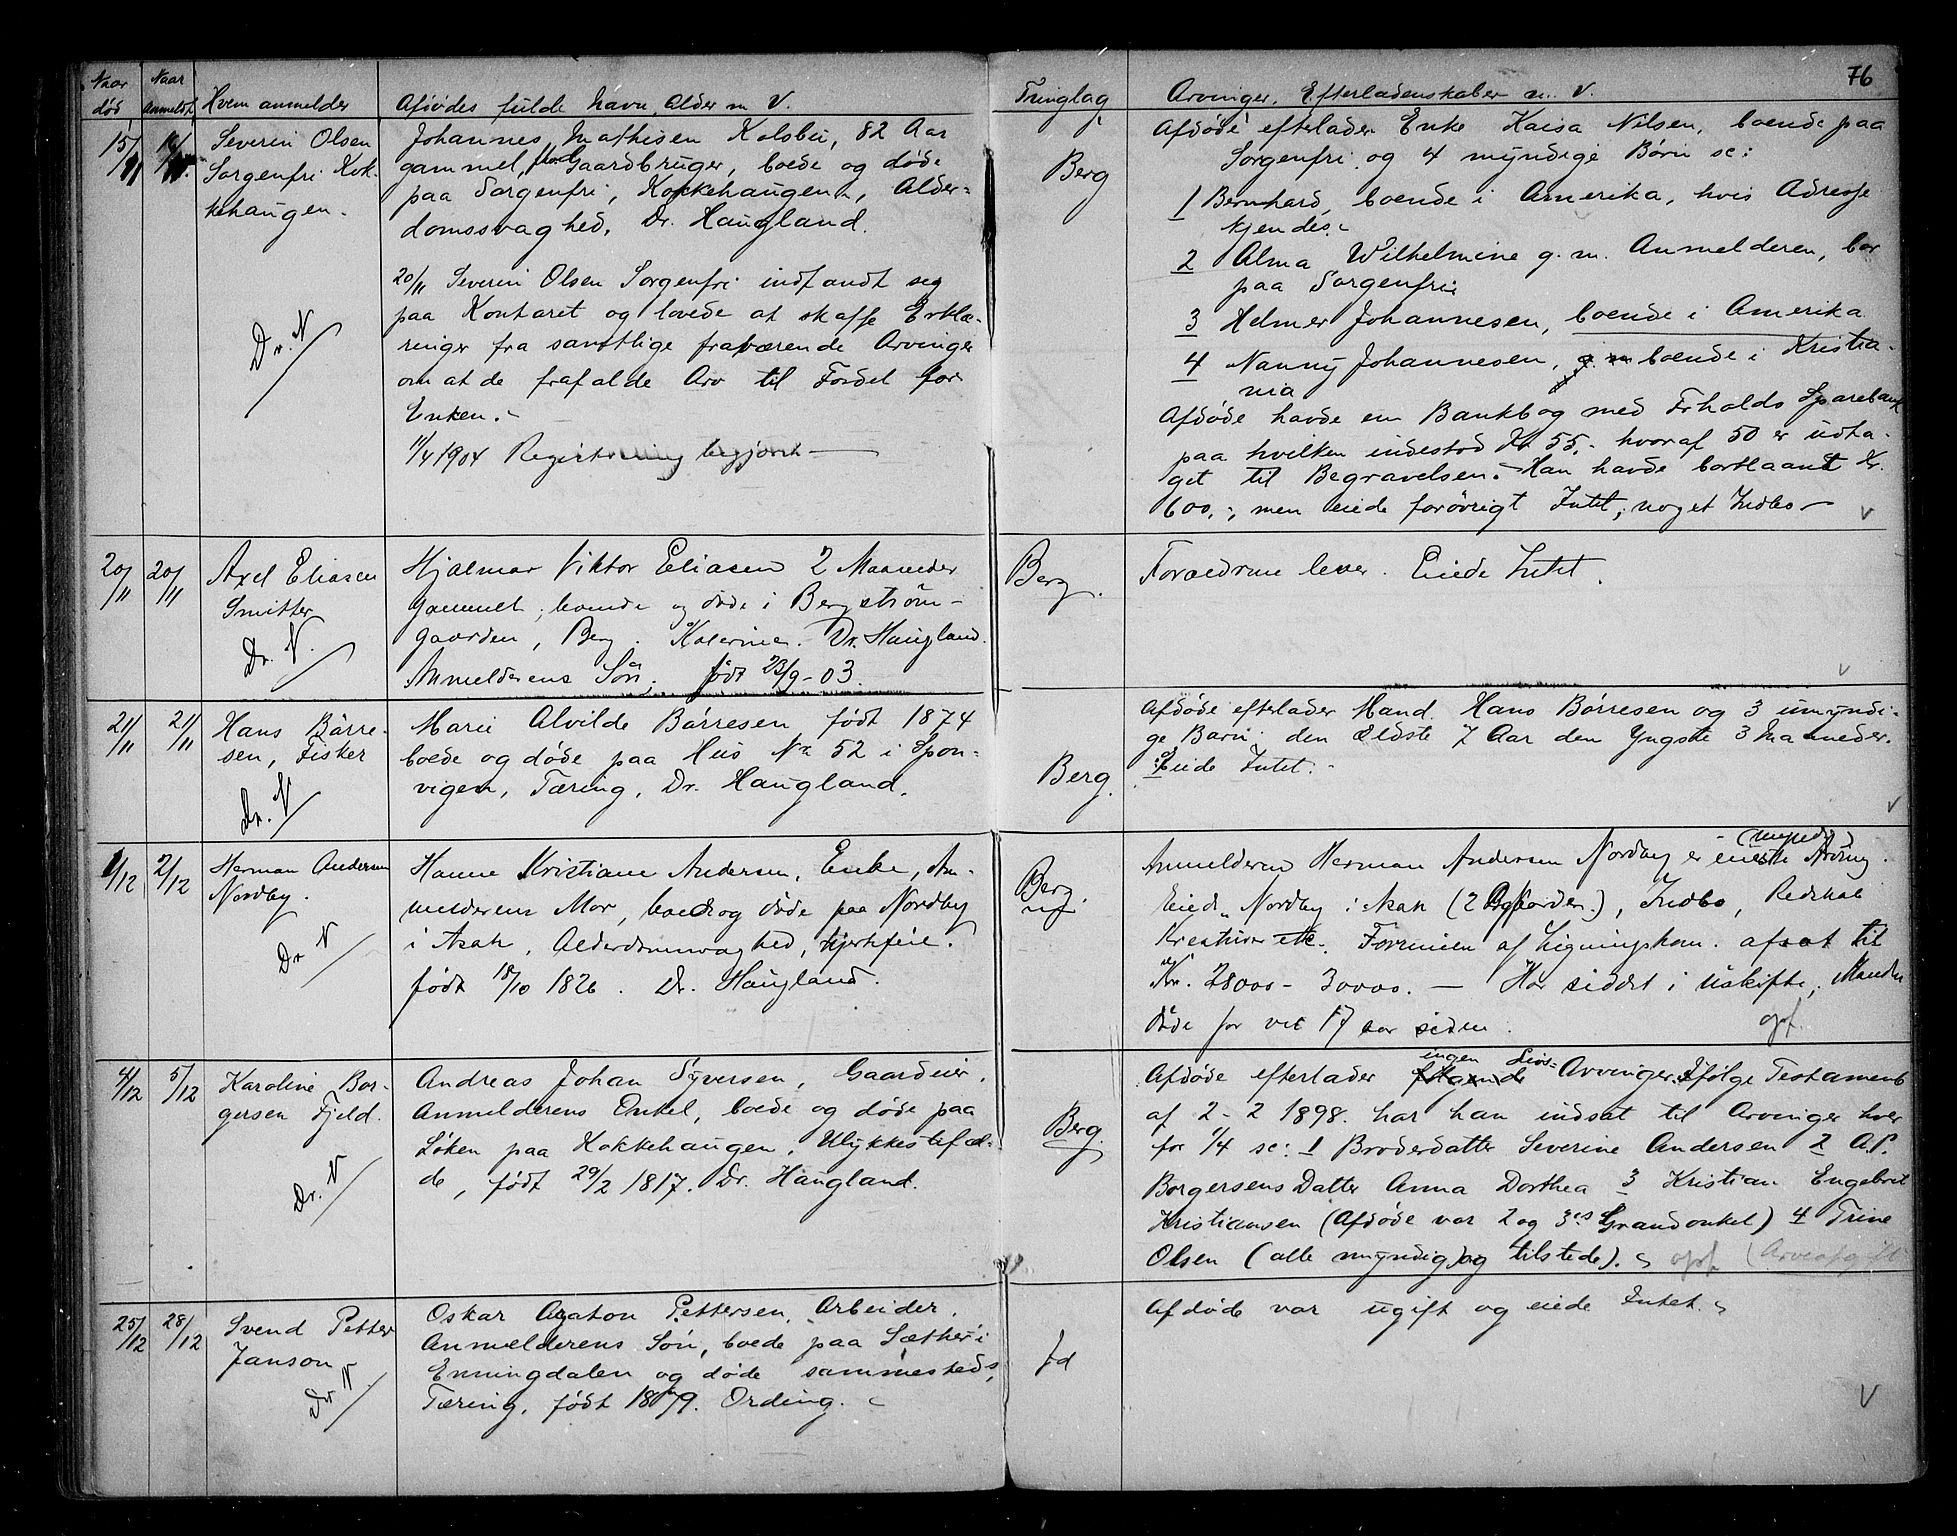 76
Naar død
Naar Anmeldt
Hvem anmelder
Afdødes fulde Navn, Alder m. V.
Thinglag
Arvinger, Efterladenskaber m. V.
15/11
Severin Olsen
Sorgenfri Kok-
kehaugen.
Dr. N
Johannes Mathisen Kolsbu, 82 Aar
gammel, Gaardbruger, boede og døde
paa Sorgenfri, Kokkehaugen, Alder-
domssvaghed. Dr. Haugland.
20/11 Severin Olsen Sorgenfri indfandt seg
paa Kontoret og lovede at skaffe Erklæ-
ringer fra samtlige fraværende Arvinger
om at de frafalde Arv til Fordel for
Enken.-
11/4 1904 Registrering begjært
Berg
Afdøde efterlader Enke Kaisa Nilsen, boende paa
Sorgenfri og 4 myndige Børn sc:
1 Bernhard, boende i Amerika, hvis Adresse
kjendes.-
2 Alma Wilhelmine g. m. Anmelderen, bor
paa Sorgenfri
3 Helmer Johannesen, boende i Amerika
4 Nanny Johannesen, g. m boende i Kristia-
nia
Afdøde havde en Bankbog med Frholds Sparebank
paa hvilken indestod Kr 55,- hvoraf 50 er udta-
get til Begravelsen.- Han havde bortlaant Kr.
600,-, men eiede forøvrigt Intet, noget Indbo
20/11
20/11
Axel Eliasen
Smitter
Dr. N.
Hjalmar Viktor Eliasen 2 Maaneder
gammel, boende og døde i Bergstrøm-
gaarden, Berg. Kolerine. Dr. Haugland.
Anmelderens Søn. født 23/9-03.
Berg.
Forældrene lever. Eiede Intet.
21/11
21/11
Hans Børre-
sen, Fisker
Dr. N
Marie Alvilde Børresen født 1874
boede og døde paa Hus Nr 52 i Spon-
vigen, Tæring, Dr. Haugland.
Berg.
Afdøde efterlader Mand Hans Børresen og 3 umyndi-
ge Barn den Ældste 7 Aar den Yngste 3 Maaneder.
Eiede Intet.-
1/12
2/12
Herman Andersen
Nordby.
Dr N
Hanne Kristiane Andersen, Enke, An-
melderens Mor, boede og døde paa Nordby
i Asak, Alderdomsvaghed, hjertfeil.
født 18/10 1826. Dr. Haugland.
Berg.
(myndig)
Anmelderen Herman Andersen Nordby er eneste Arving.
Eied. Nordby i Asak (2 Bgaarder.), Indbo, Redskab
Kreaturer etc. Formuen af Ligningskom. afsat til
Kr. 28000 - 30000. — Har siddet i Uskifte, Manden
døde for vel 17 aar siden.
opf.
4/12
5/12
Karoline Bor-
gersen Fjeld.
Dr. N
Andreas Johan Syversen, Gaardeier,
Anmelderens Onkel, boede og døde paa
Løken paa Kokkehaugen, Ulykkestilfæl-
de, født 20/2 1817. Dr. Haugland.
Berg.
ingen Livs-
Afdøde efterlader følgende Arvinger. Ifølge Testament
af 2-2 1898 har han indsat til Arvinger hver
for 1/4 sc: 1 Broderdatter Severine Andersen 2 A. P.
Borgersens Datter Anna Dorthea 3 Kristian Engebret
Kristiansen (Afdøde var 2 og 3es Grandonkel) 4 Trine
Olsen (alle myndig og tilstede). opf. (Arveafgift
25/12
28/12
Svend Petter
Janson
Dr N.
Oskar Agaton Pettersen, Arbeider,
Anmelderens Søn, boede paa Sæther i
Enningdalen og døde sammesteds,
Tæring, født 1879. Ording.
Id
Afdøde var ugift og eiede Intet.